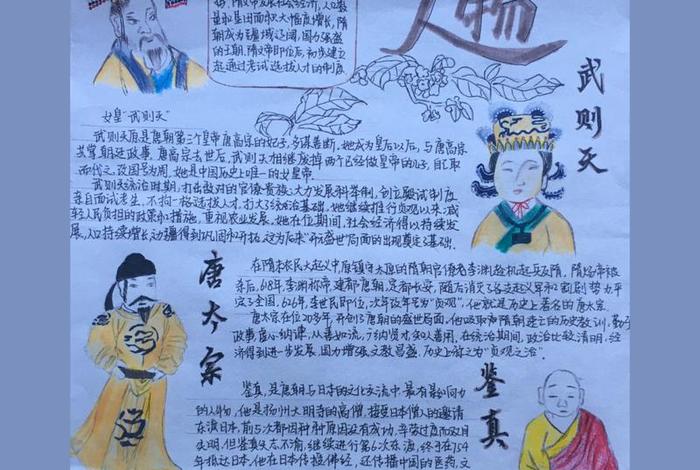 隋文帝发展社会经济,人口数
量和垦田面积大幅度增长,隋
朝成为疆域辽阔,国力强盛
的王朝,隋文帝即位后,初步建立
起通过考试选拔人才的制度
武则天
女皇"武则天"
武则天原是唐朝第三个皇帝唐高宗的妃子,多谋善断,她成为皇后以后,与唐高宗
共掌朝廷政事,唐高宗去世后,武则天相继废掉两个已经做皇帝的儿子,自己取
而代之,改国号为周,她是中国历史上唯一的女皇帝.
武则天统治时期,打击敌对的官僚贵族,大力发展科举制,创立殿试制度
亲自面试考生,不拘一格选拔人才,扩大了统治基础,她继续推行贞观以来,减
轻人民负担的政策和措施,重视农业发展,她在位期间,社会经济得以持续发
展,人口持续增长,边疆得到巩固和开拓,这为后来"开元盛世"局面的出现奠定基础.
唐太宗
在隋末农民大起义中,原镇守太原的隋朝官僚李渊趁机起兵反隋,隋炀帝被
杀后,618年,李渊称帝,建都唐朝,定都长安,随后消灭了各支起义军和割据势力,平
定了全国,626年,李世民即位,次年改年号为"贞观",他就是历史上著名的唐太宗.
唐太宗在位20多年,开创了唐朝的盛世局面,他吸取隋朝速亡的历史教训,勤于
政事,虚心纳谏,从善如流,广纳贤才,知人善用,在统治期间,政治比较清明,经
济得到进一步发展,国力增强,文教昌盛,历史上称之为"贞观之治".
鉴真
鉴真,是唐朝与日本的文化交流中,最有影响力
的人物,他是扬州大明寺的高僧,接受日本僧人的邀请
东渡日本,前5次都因种种原因没有成功,辛劳过度而双目
失明,但鉴真矢志不渝,继续进行第6次东渡,终于在754
年抵达日本,他在日本传授佛经,还传播中国的医药,文